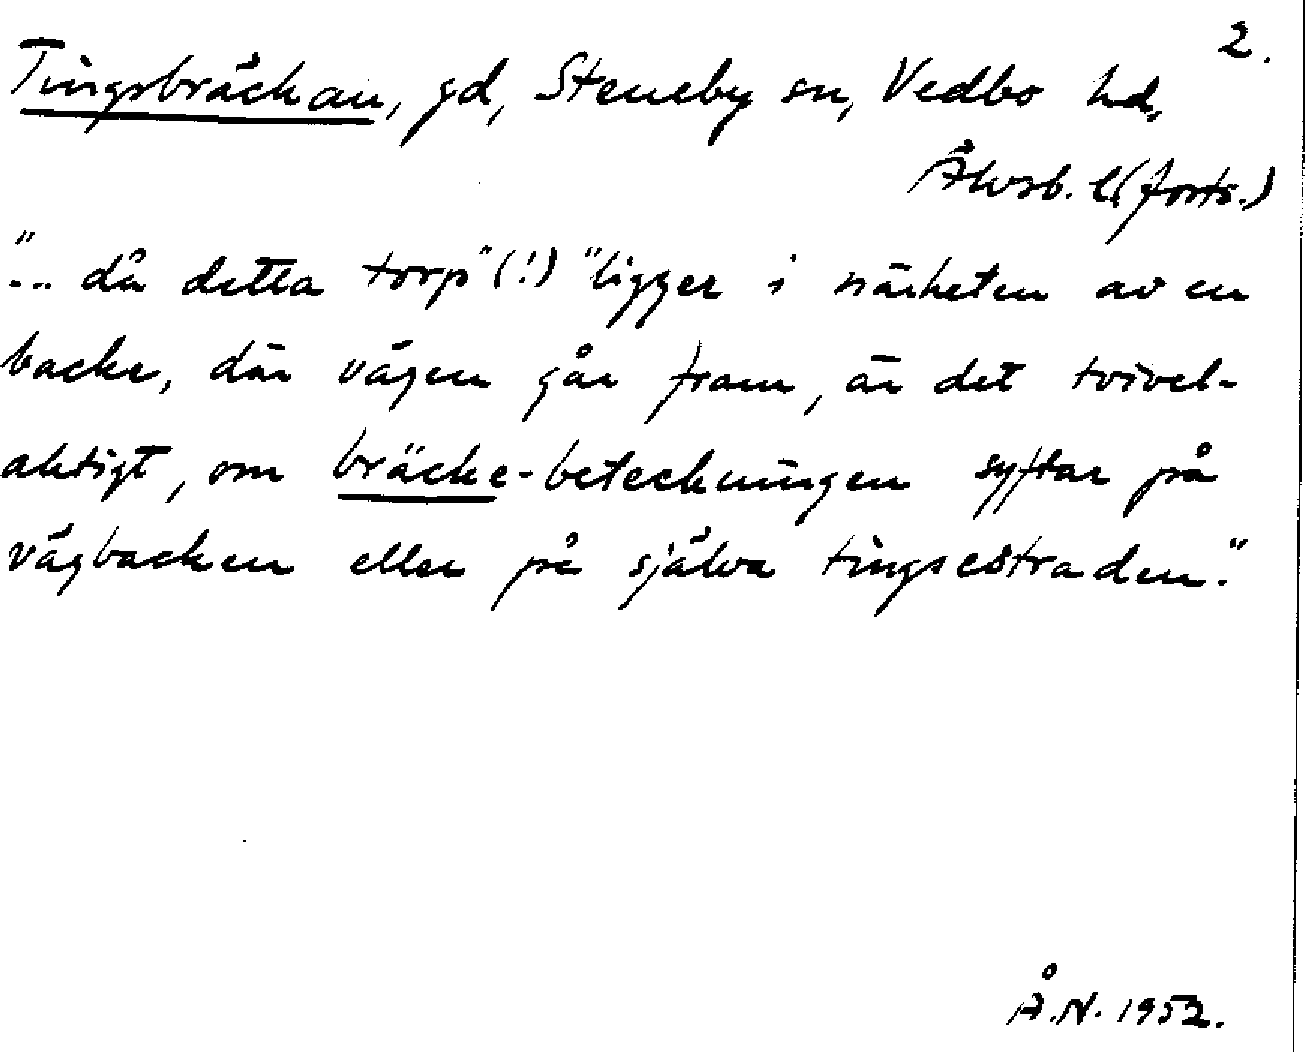 2.
Tingsbräckan, gd, Steneby sn, Vedbo hd,
Älvsb. l. (forts.)
"... då detta torp" (!) "ligger i närheten av en
backe, där vägen går fram, är det tvivel-
aktigt, om bräcke-beteckningen syftar på
vägbacken eller på själva tingsestraden."
Å.N. 1952.